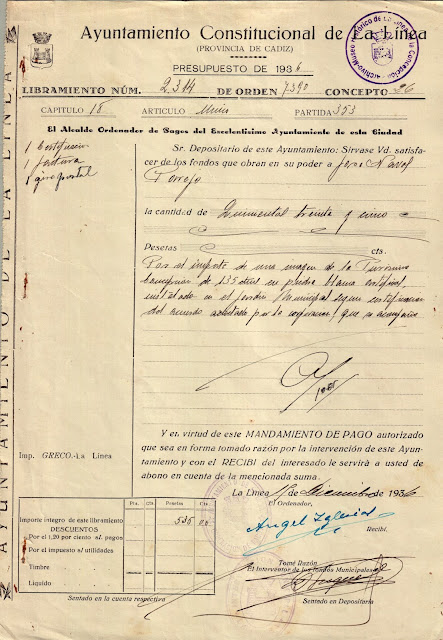 Ayuntamiento Constitucional de La Línea
(PROVINCIA DE CADIZ)
PRESUPUESTO DE 1936
LIBRAMIENTO NÚM. 2.314 DE ORDEN 7390 CONCEPTO 36
CAPITULO 18 ARTICULO Unico PARTIDA 353
El Alcalde Ordenador de Pagos del Excelentísimo Ayuntamiento de esta Ciudad
1 Certificacion
1 factura
1 giro postal
Sr. Depositario de este Ayuntamiento: Sírvase Vd. satisfa-
cer de los fondos que obran en su poder a Jose
la cantidad de treinta y cinco
Pesetas cts.
Por el importe de una imagen de la Purisima
Concepcion de 1'35 en piedra blanca artificial,
instalada en el jardin Municipal segun certificacion
del acuerdo adoptado por la que se acompaña
Y en virtud de este MANDAMIENTO DE PAGO autorizado
que sea en forma tomado razón por la intervención de este Ayun-
tamiento y con el RECIBÍ del interesado le servirá a usted de
abono en cuenta de la mencionada suma.
Imp. GRECO.-La Línea
La Línea de Diciembre de 1936
El Ordenador,
Angel Iglesias
Recibí.
Pts. Cts Pesetas Cts
Importe íntegro de este libramiento 535
DESCUENTOS
Por el 1,20 por ciento s/. pagos
Por el impuesto s/ utilidades
Timbre
Líquido
Sentado en la cuenta respectiva
Tomé Razón
El Interventor de los Fondos Municipales
Sentado en Depositaría
AYUNTAMIENTO DE LA LINEA
Archivo-Museo Histórico de La Línea de la Concepción